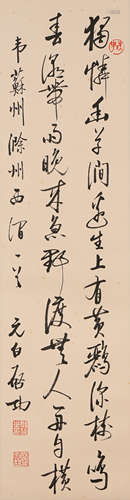 獨憐幽草澗邊生上有黃鸝深樹鳴
春潮帶雨晚來急野渡無人舟自橫
韋蘇州滁州西澗一首 元白啟功